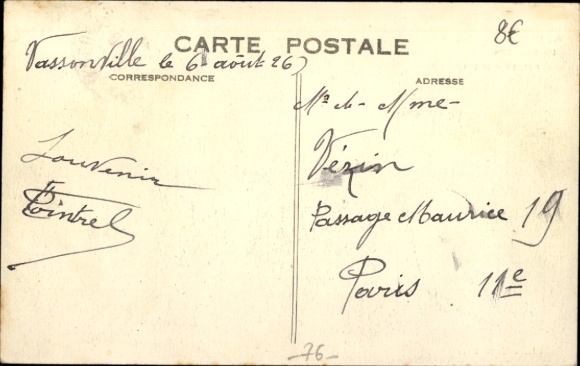 CARTE POSTALE
8€
Vassonville le 6 août 26
CORRESPONDANCE
ADRESSE
Mr &. Mme
Vézin
Passage Maurice 19
Paris 11e
Souvenir
Pointrel
-76-